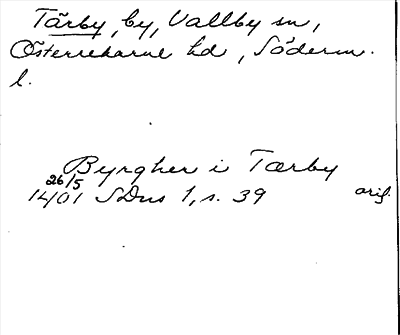 Tärby, by, Vallby sn,
Österrekarne hd, Söderm.
l.
Byrgher i Tærby
26/5
1401 SDns 1, s. 39 orig.